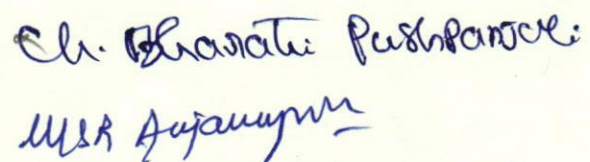 Ch. Bharathi Pushpanjali
MSR Anjaneyulu